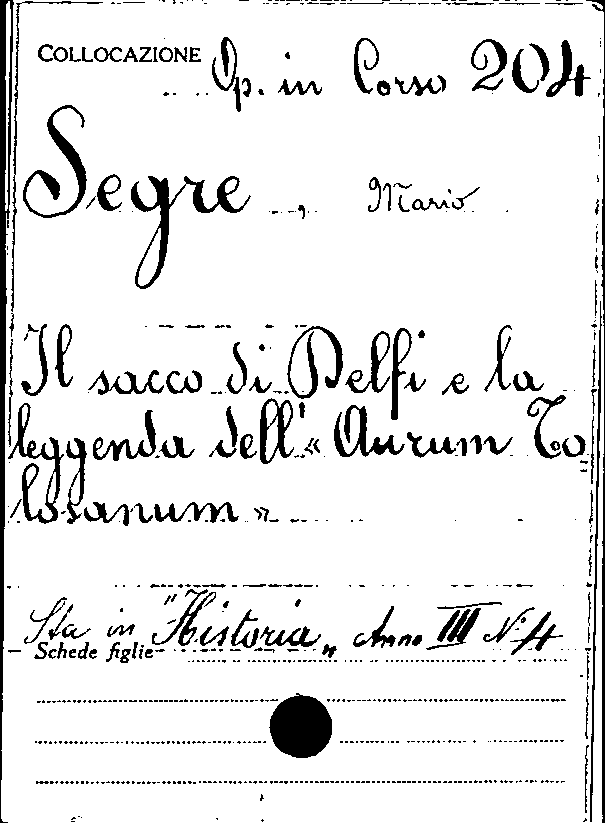 COLLOCAZIONE Op. in Corso 204
Segre, Mario
Il sacco di Delfi e la
leggenda dell'« Aurum To
losanum »
Sta in "Historia„ Anno III N.º 4
Schede figlie